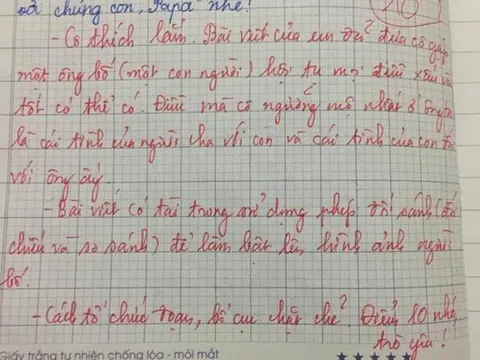 với chúng con, Papa nhé!
10
- Cô thích lắm. Bài viết của em đã đưa cô gặp
một ông bố (một con người) hội tụ mọi điều xấu và
tốt có thể có. Điều mà cô ngưỡng mộ nhất ở ông ấy
là cái tình của người cha với con và cái tình của con
với ông ấy.
- Bài viết có tài trong sử dụng phép đối sánh (đối
chiếu và so sánh) để làm bật lên hình ảnh người
bố.
- Cách tổ chức đoạn, bố cục chặt chẽ. Điểm 10 nhé,
trò yêu!
Giấy trắng tự nhiên chống lóa - mỏi mắt